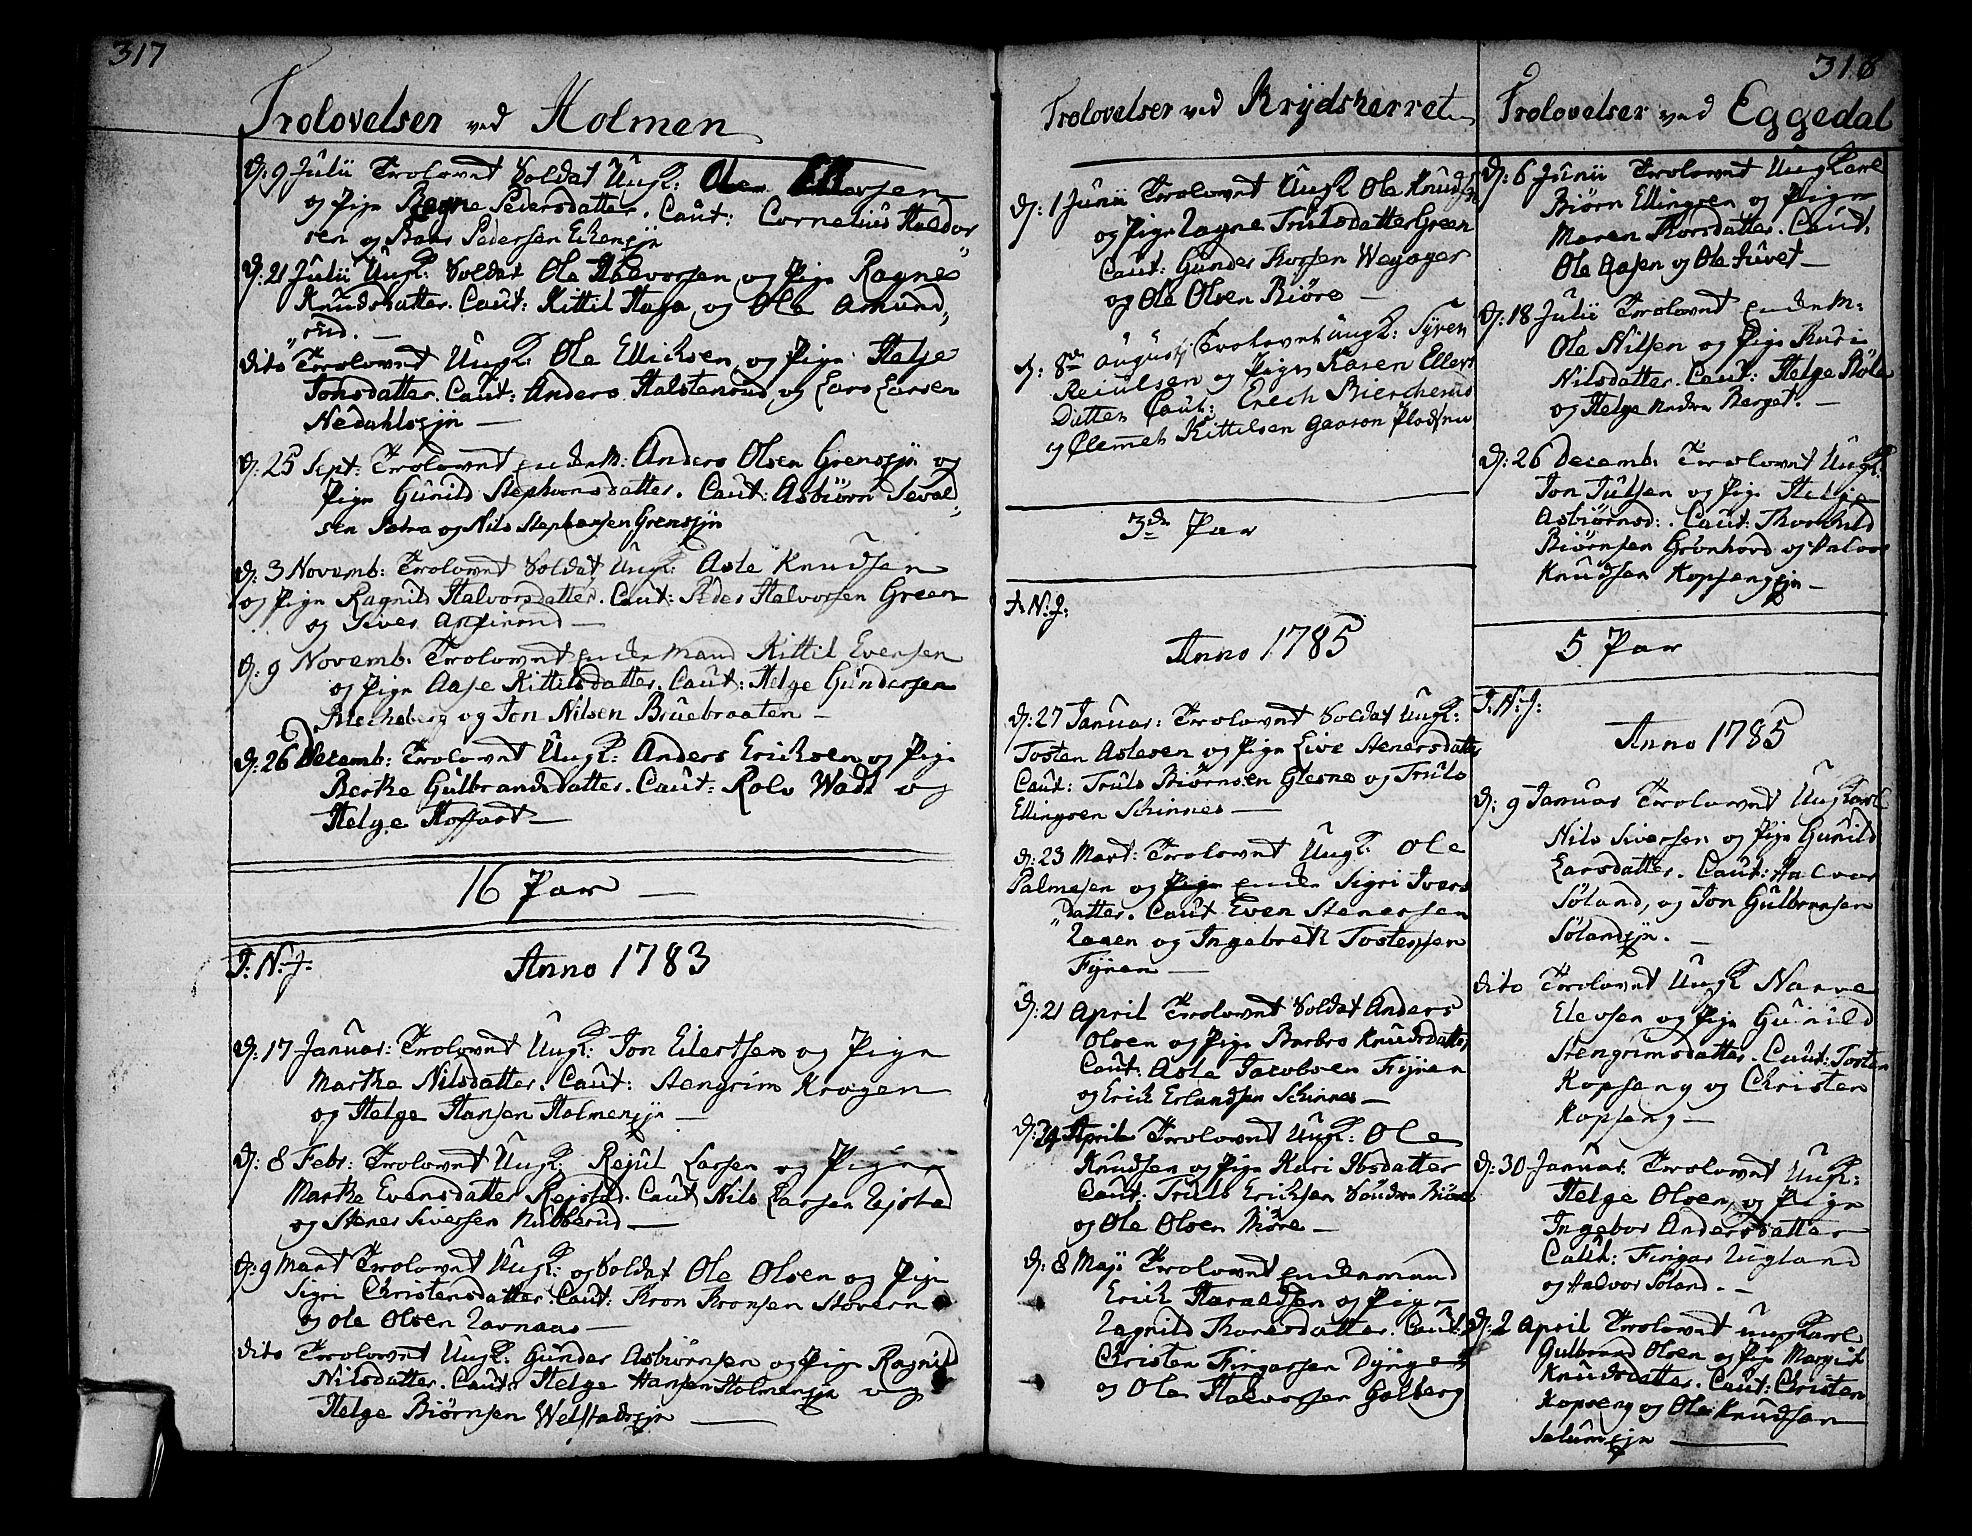 317
Trolovelser ved Holmen
D: 9 Julii Trolovet Soldat Ungk: Ole Ellevsen
og Pige Ragne Pedersdatter. Caut: Cornelius Haldor
sen og Baar Pedersen Eikenejn
D: 21 Julii Ungk: Soldat Ole Halvorsen og Pige Ragne
Knudsdatter. Caut: Kittil Haga og Ole Amund„
„rud. —
dito Trolovet Ungk: Ole Ellichsen og Pige Helge
Jonsdatter. Caut: Anders Halstensrud, og Lars Larsen
Nedahlsejn —
D: 25 Sept: Trolovet Enckem: Anders Olsen Grensejn og
Pige Gunild Stephensdatter. Caut: Asbiørn Sevald„
sen Sætra og Nils Stephensen Grensejn
D: 3 Novemb: Trolovet Soldat Ungk: Asle Knudsen
og Pige Ragnild Halvorsdatter. Caut: Peder Halvorsen Green
og Siver
D: 9 Novemb: Trolovet Enckemand Kittil Evensen
og Pige Aase Kittilsdatter. Caut: Helge Gundersen
og Jon Nilsen Bruebraaten —
D: 26 Decemb: Trolovet Ungk: Anders Erichsen og Pige
Berthe Gulbrandsdatter. Caut: Rolv Wadt og
Helge Hoffart —
16 Par —
I: N: J:
Anno 1783
D: 17 Januar: Trolovet Ungk: Jon Eilertsen og Pige
Marthe Nilsdatter. Caut: Stengrim Kragen
og Helge Hansen Holmenejn —
D: 8 Febr: Trolovet Ungk: Rejul Larsen og Pige
Marthe Evensdatter Rejsted. Caut Nils Larsen Rejsted
og Stener Siversen Nubberud —
D: 9 Mart Trolovet Ungk: og Soldat Ole Olsen og Pige
Sigri Christensdatter. Caut: Thron Thronsen Stovern
og Ole Olsen Ravnaas —
dito Trolovet Ungk: Gunder Asbiørnsen og Pige Ragnild
Nilsdatter. Caut: Helge Hansen Holmenejn og
Helge Biørnsen Welstadejn —
318
Trolovelser ved Krydsherret
D: 1 Junii Trolovet Ungk Ole Knudsen
og Pige Ragne Trulsdatter Green
Caut: Gunder Thorsen
og Ole Olsen Biøre —
D: 8de August Trolovet Ungk: Syver
Reiulsen og Pige Karen Ellers
Datter Caut: Erech Bierckerud
og Clemet Kittilsen Gaaron
3de Par
I: N: J:
Anno 1785
D: 27 Januar: Trolovet Soldat Ungk:
Tosten Aslesen og Pige Live Stenersdatter
Caut: Truls Biørnsen Glesne og Truls
Ellingsen Schinnes —
D: 23 Mart: Trolovet Ungk: Ole
Palmesen og Pige Encke Sigri Ivers
„datter. Caut Even Stenersen
Ragen og Ingebreth Tostensen
Fyren —
D: 21 April Trolovet Soldat Anders
Olsen og Pige Barbro Knudsdatter
Caut: Asle Jacobsen Fyren
og Erik Erlandsen Schinnes —
D: 24 April Trolovet Ungk: Ole
Knudsen og Pige Kari Ibsdatter
Caut: Truls Erichsen Søndre Biøre
og Ole Olsen Biøre —
D: 8 Maji Trolovet Enckemand
Erich Haraldsen og Pige
Ragnild Thoresdatter. Caut:
Christen Fingarsen Dynge
og Ole Halvorsen Golberg
Trolovelser ved Eggedal
D: 6 Junii Trolovet Ungkarl
Biørn Ellingsen og Pige
Maren Thorsdatter. Caut.
Ole Aasen og Ole Juvet —
D: 18 Julii Trolovet Enckem:
Ole Nilsen og Pige Kari
Nilsdatter. Caut: Helge Røle
og Helge Nedre Berget. —
D: 26 Decemb: Trolovet Ungk:
Jon Julsen og Pige Helge
Asbiørnsd:. Caut: Thorkild
Biørnsen Grønhovd og Halvor
Knudsen Kopsengejn —
5 Par
I: N: J:
Anno 1785
D: 9 Januar Trolovet Ungkarl
Nils Siversen og Pige Gunild
Larsdatter. Caut: Halvor
Søland, og Jon Gulbransen
Sølandejn. —
dito Trolovet Ungk Narve
Elevsen og Pige Gunild
Stengrimsdatter. Caut: Tosten
Kopseng og Christen
Kopseng —
D: 30 Januar. Trolovet Ungk:
Helge Olsen og Pige
Ingebor Andersdatter
Caut: Fingar Ugland
og Halvor Søland. —
D: 2 April Trolovet Ungkarl
Gulbrand Olsen og Pige Margit
Knudsdatter. Caut: Christen
Kopseng og Ole Knudsen
Salumejn —